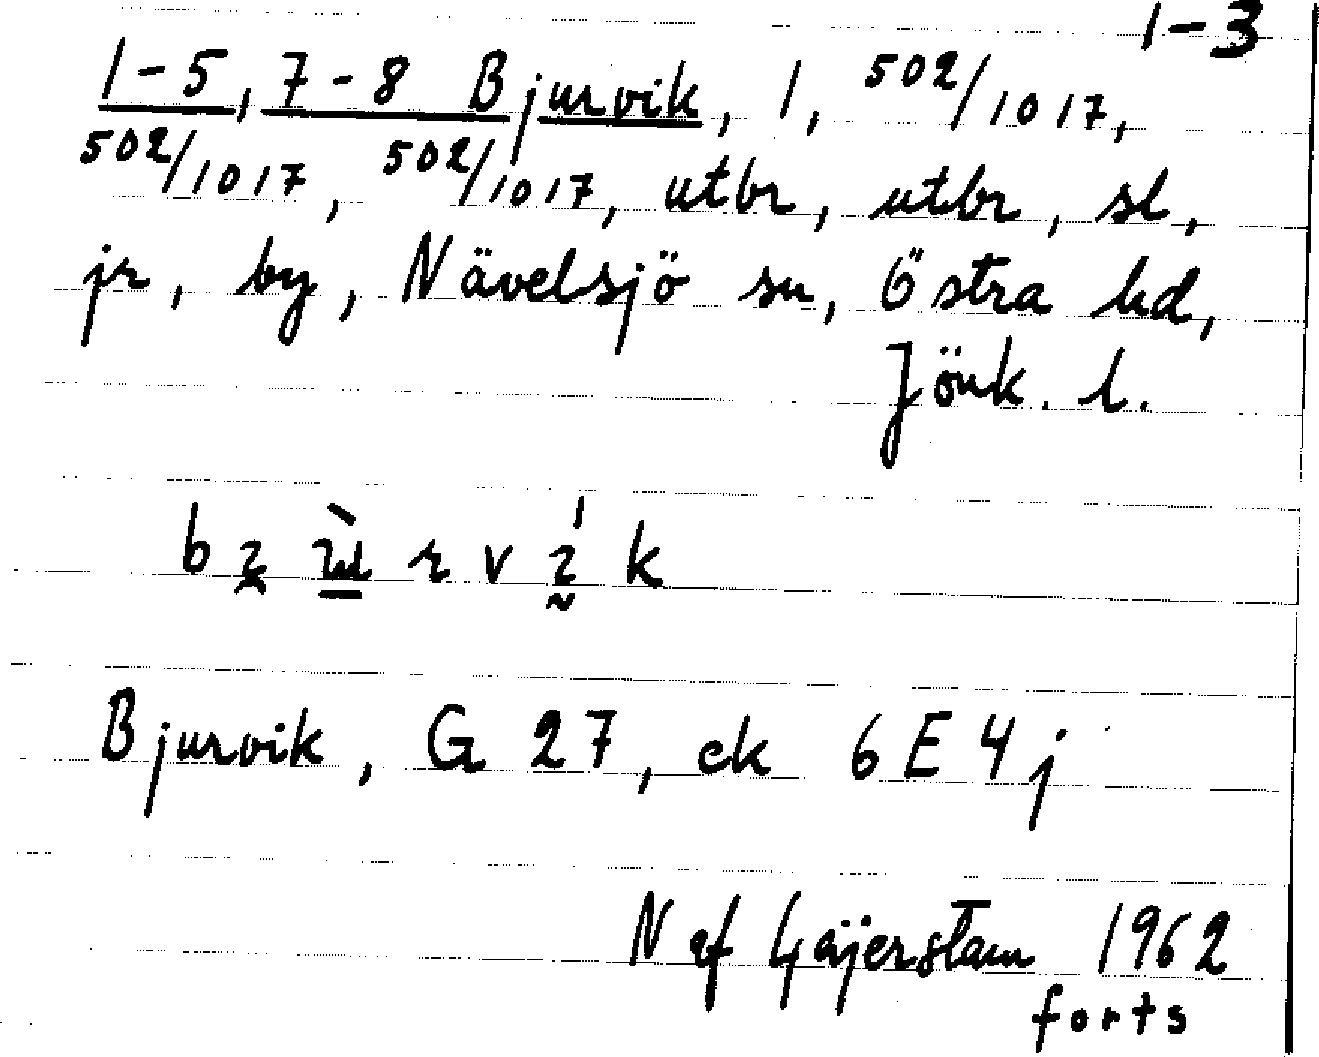 1-3
1-5, 7-8 Bjurvik, 1, 502/1017,
502/1017, 502/1017, utbr, utbr, sl,
jr, by, Nävelsjö sn, Östra hd,
Jönk. l.
Bjurvik, G 27, ek 6E4j
N af Gäijerstam 1962
forts